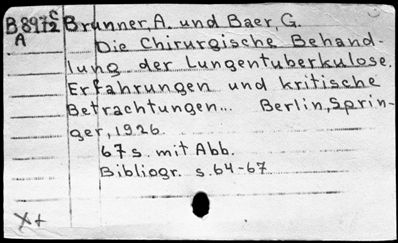 B897 C/2 Brunner, A. und Baer, G.
A Die Chirurgische Behand-
lung der Lungentuberkulose.
Erfahrungen und kritische
Betrachtungen... Berlin, Sprin-
ger, 1926.
67 s. mit Abb.
Bibliogr. s. 64-67
X+